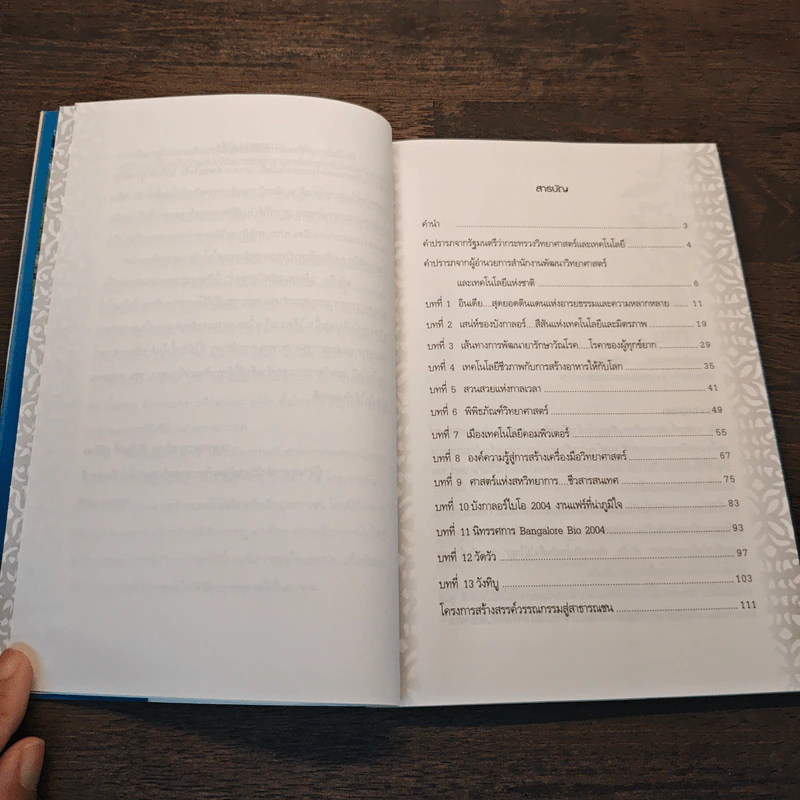 สารบัญ
คำนำ ........ 3
คำปรารภจากรัฐมนตรีว่ากระทรวงวิทยาศาสตร์และเทคโนโลยี ........ 4
คำปรารภจากผู้อำนวยการสำนักงานพัฒนาวิทยาศาสตร์
และเทคโนโลยีแห่งชาติ ........ 6
บทที่ 1 อินเดีย....สุดยอดดินแดนแห่งอารยธรรมและความหลากหลาย ........ 11
บทที่ 2 เสน่ห์ของบังกาลอร์....สีสันแห่งเทคโนโลยีและมิตรภาพ ........ 19
บทที่ 3 เส้นทางการพัฒนายารักษาวัณโรค.....โรคาของผู้ทุกข์ยาก ........ 29
บทที่ 4 เทคโนโลยีชีวภาพกับการสร้างอาหารให้กับโลก ........ 35
บทที่ 5 สวนสวยแห่งกาลเวลา ........ 41
บทที่ 6 พิพิธภัณฑ์วิทยาศาสตร์ ........ 49
บทที่ 7 เมืองเทคโนโลยีคอมพิวเตอร์ ........ 55
บทที่ 8 องค์ความรู้สู่การสร้างเครื่องมือวิทยาศาสตร์ ........ 67
บทที่ 9 ศาสตร์แห่งสหวิทยาการ....ชีวสารสนเทศ ........ 75
บทที่ 10 บังกาลอร์ไบโอ 2004 งานแฟร์ที่น่าภูมิใจ ........ 83
บทที่ 11 นิทรรศการ Bangalore Bio 2004 ........ 93
บทที่ 12 วัดวัว ........ 97
บทที่ 13 วังทิบู ........ 103
โครงการสร้างสรรค์วรรณกรรมสู่สาธารณชน ........ 111